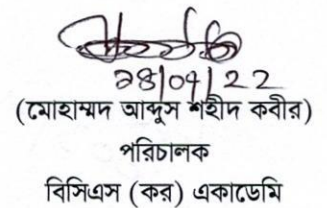 ২৪/০৭/২২
(মোহাম্মদ আব্দুস শহীদ কবীর)
পরিচালক
বিসিএস (কর) একাডেমি